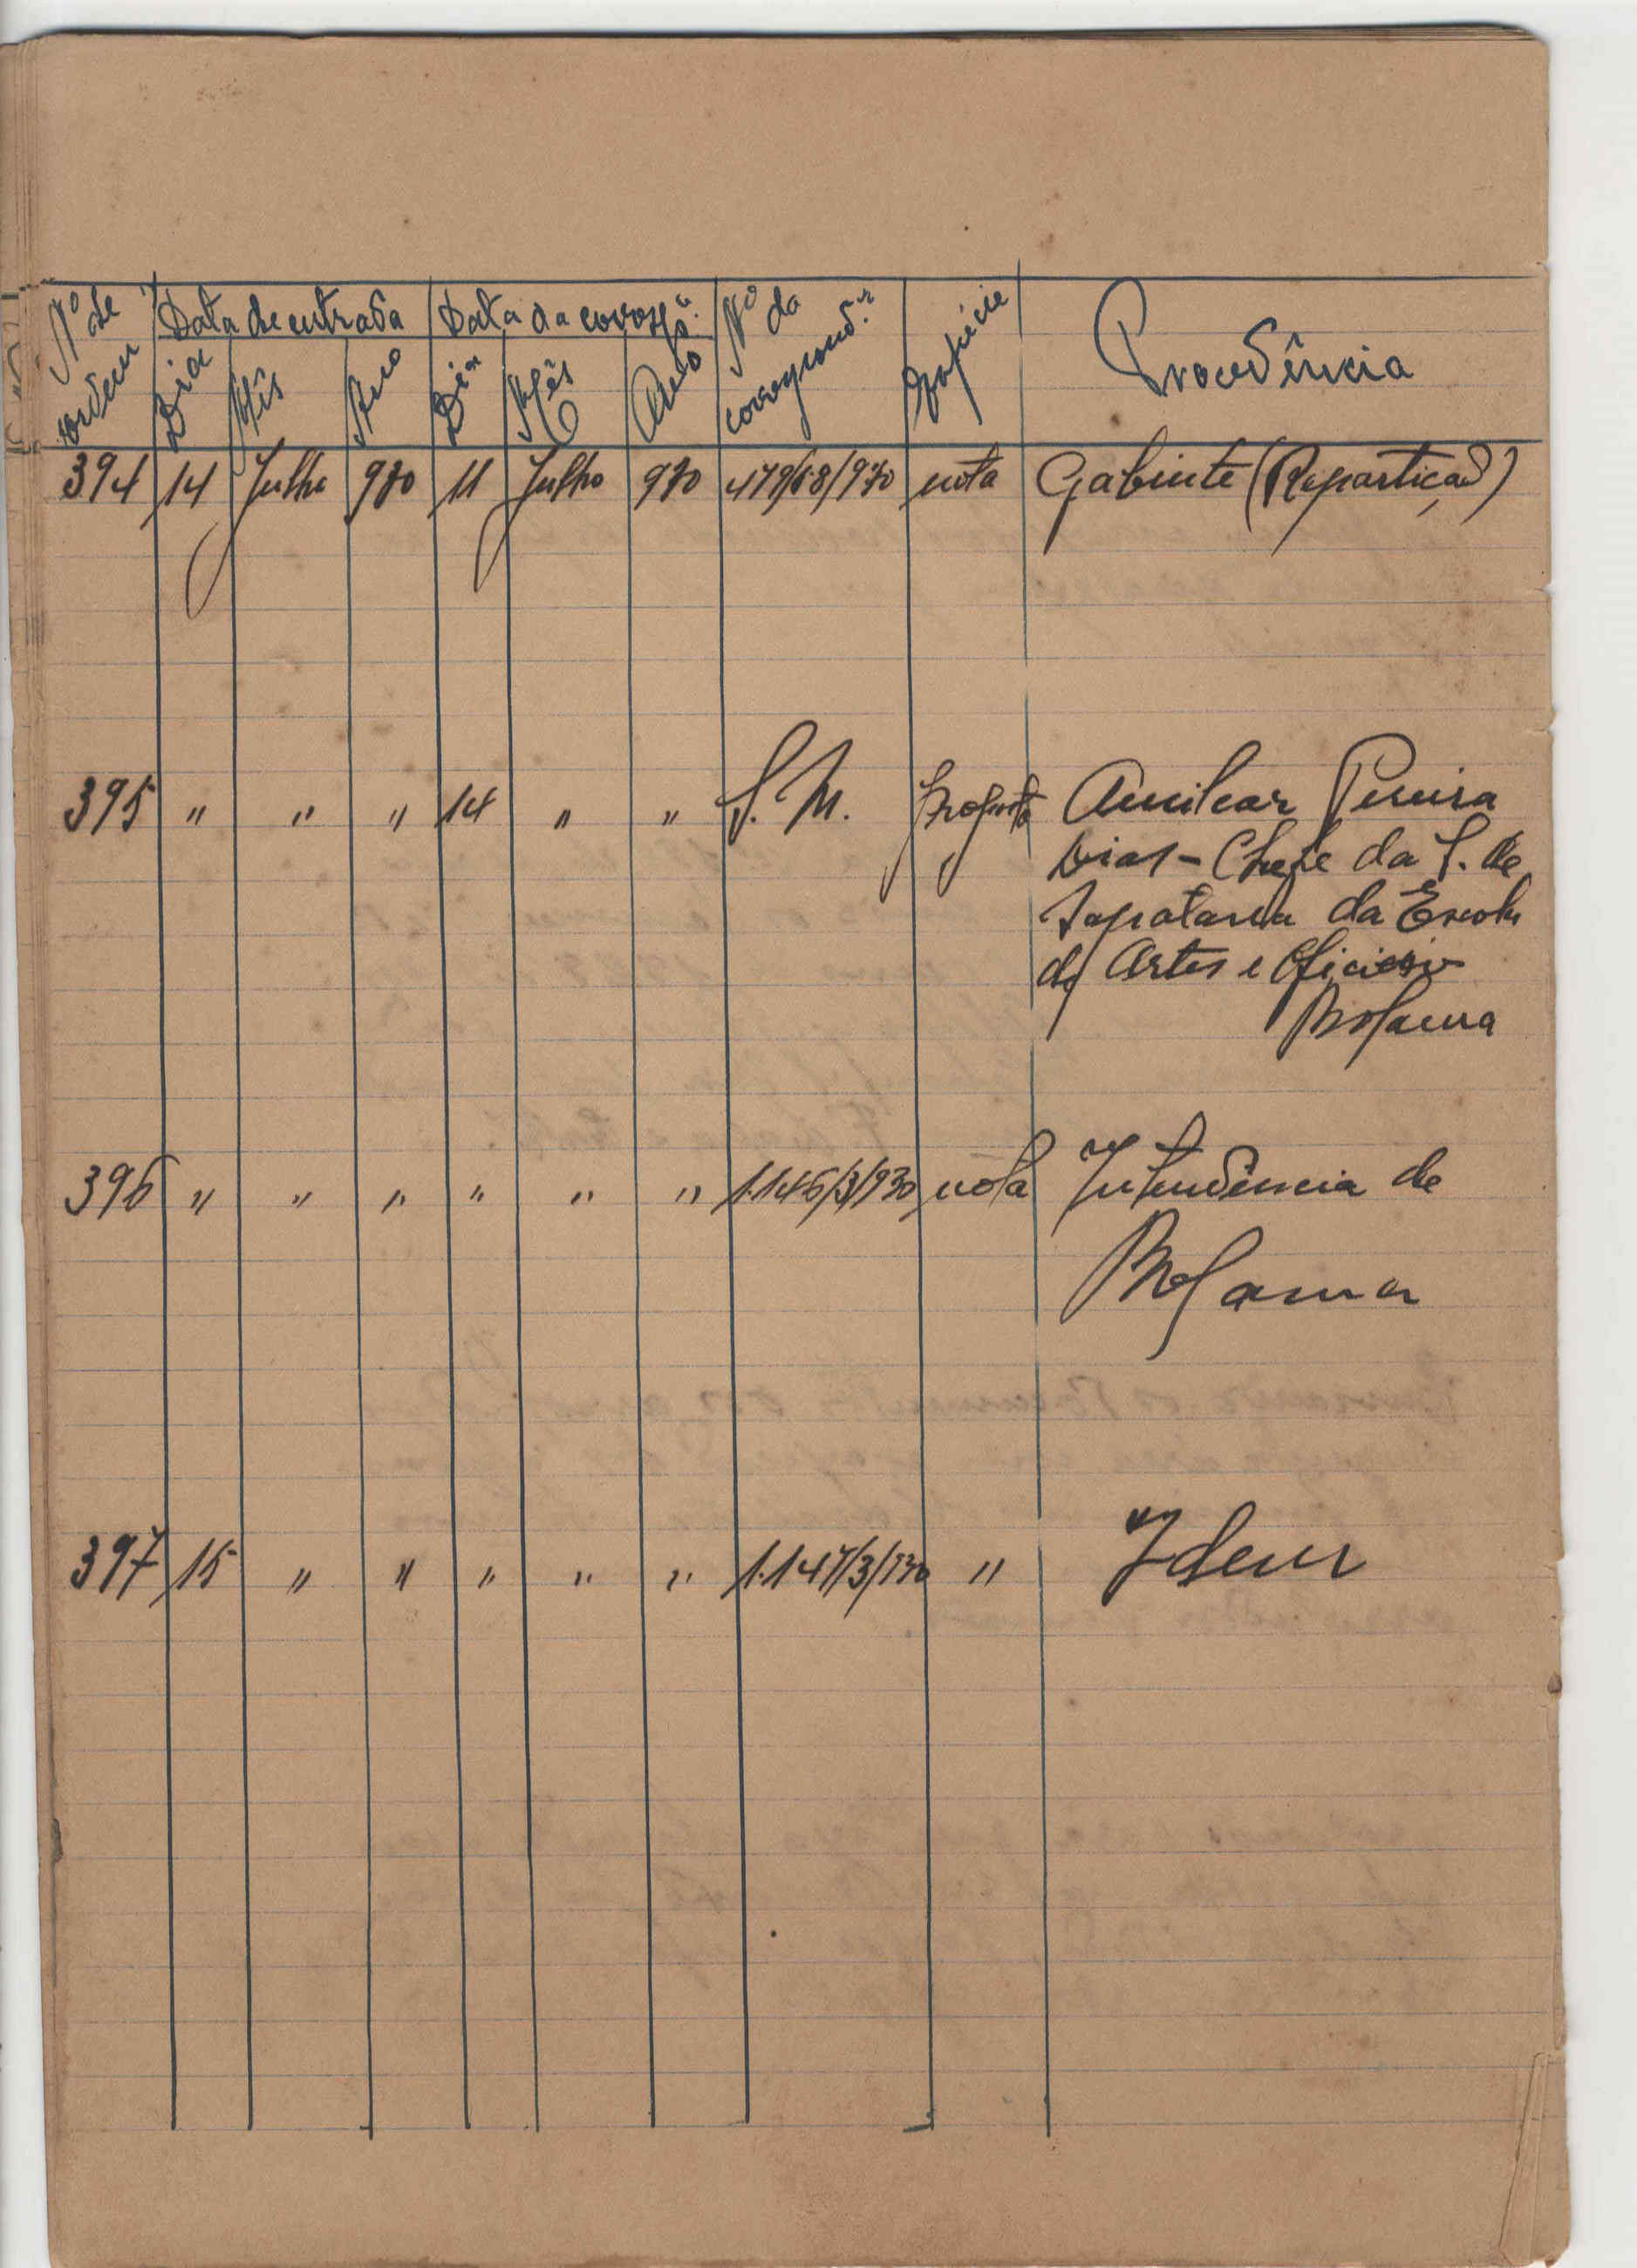 Nº de ordem | Data de entrada | Data da corresp.ª | Nº da correspond.ª | Espécie | Procedência
Dia | Mês | Ano | Dia | Mês | Ano
394 | 14 | Julho | 930 | 11 | Julho | 930 | 479/68/930 | nota | Gabinte (Repartição)
395 | " | " | " | 14 | " | " | S. N. | proposta | Amilcar Pereira
Dias - Chefe da S. de
Sapataria da Escola
de Artes e Oficios
Bolama
396 | " | " | " | " | " | " | 1.146/3/930 | nota | Intendência de
Bolama
397 | 15 | " | " | " | " | " | 1.147/3/930 | " | Idem